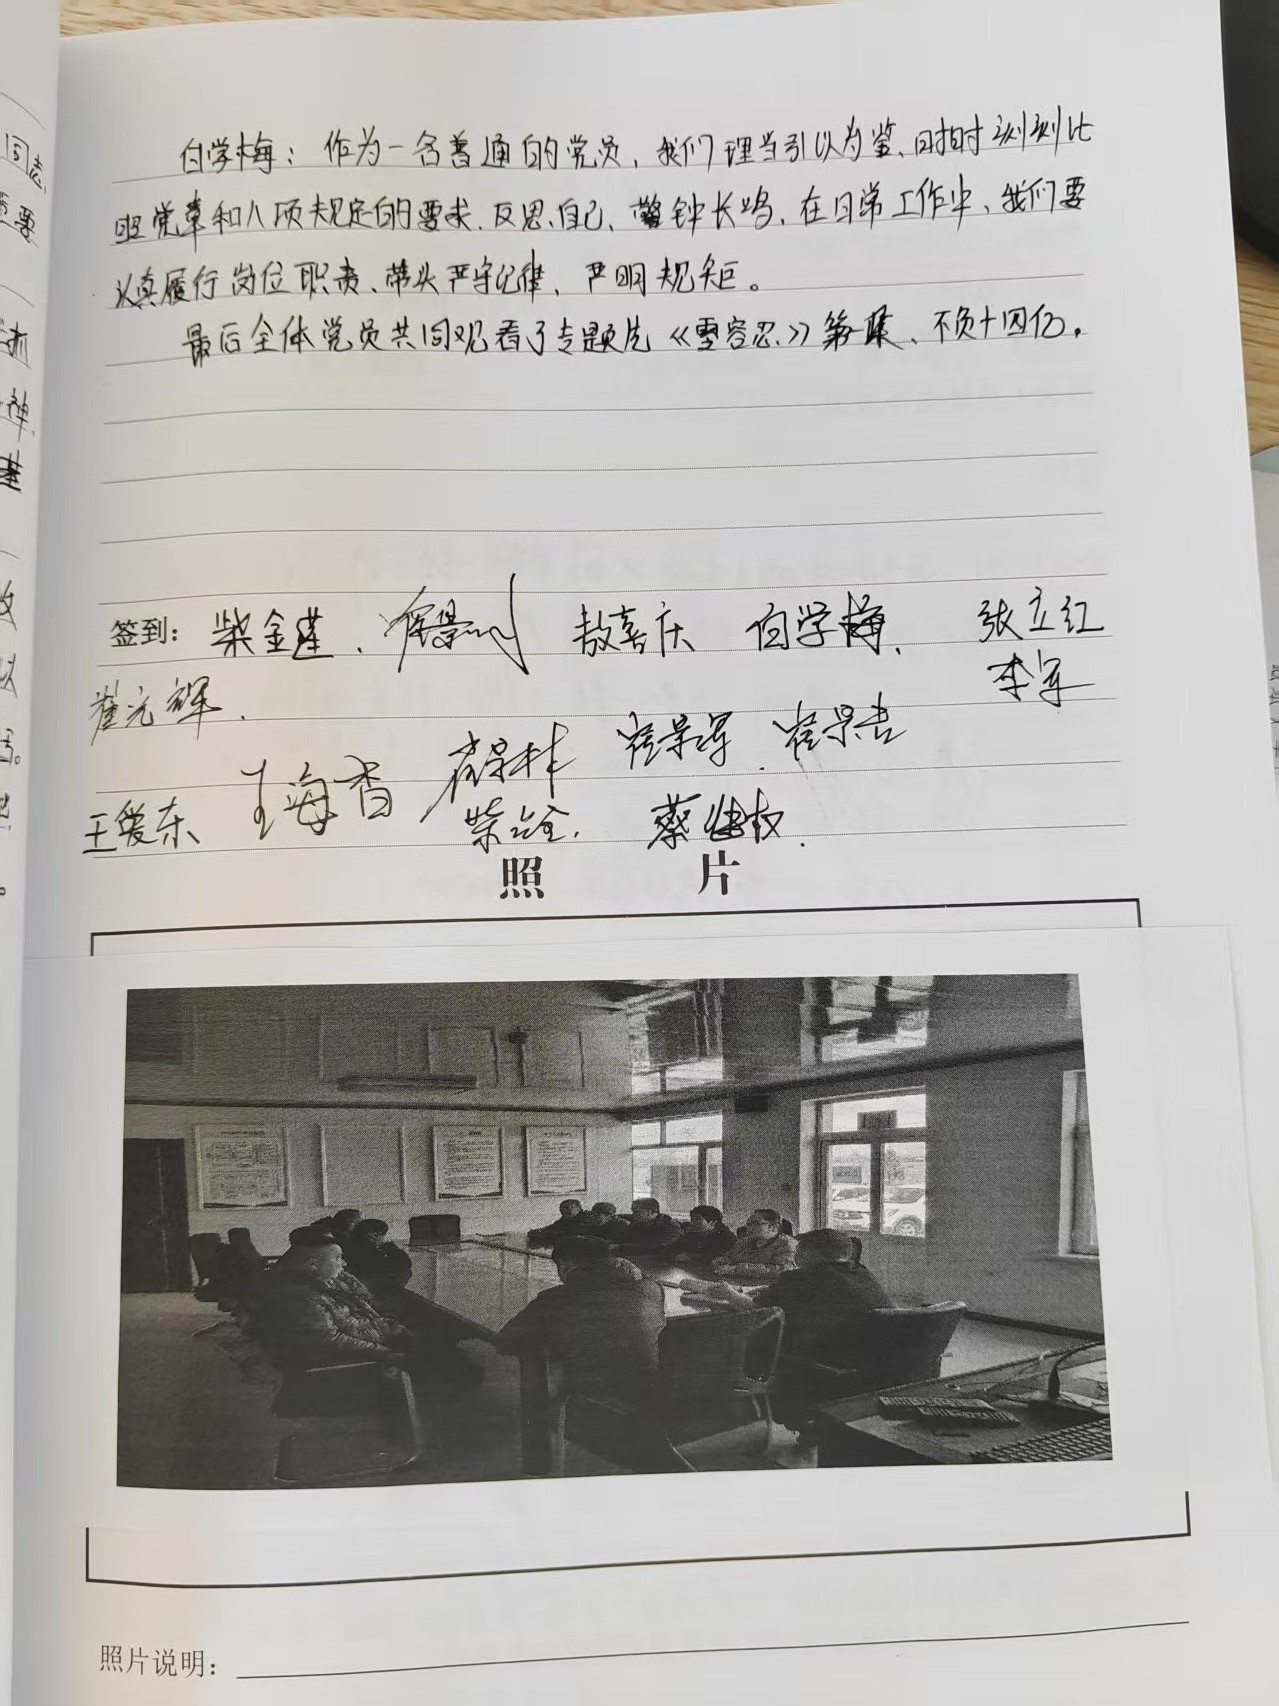 白学梅：作为一名普通的党员，我们理当引以为鉴、时时刻刻比
照党章和八项规定的要求、反思自己，警钟长鸣，在日常工作中，我们要
认真履行岗位职责、带头严守纪律，严明规矩。
最后全体党员共同观看了专题片《零容忍》第一集、不负十四亿。
签到： 柴金莲、 敖喜庆 白学梅、 张立红
崔元辉、 李军
王海香 崔景军、崔景吉
王爱东 柴 蔡
照 片
照片说明：
同志
重要
神
基
以